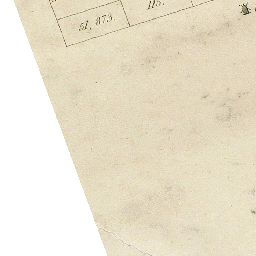 51,875. 115.